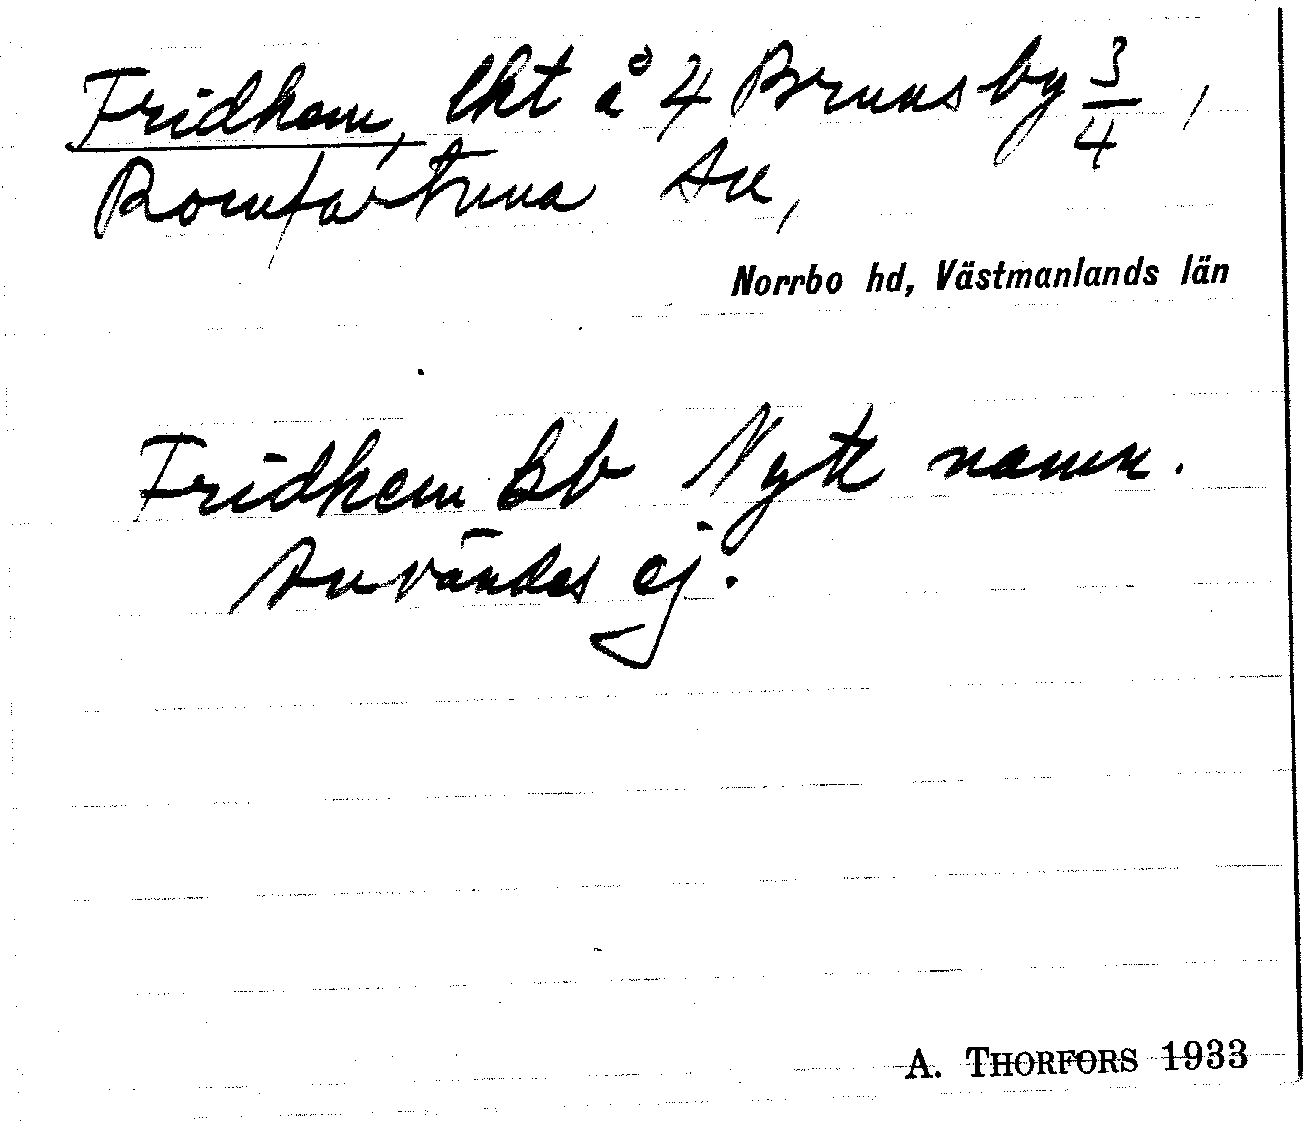 Fridhem, lht å 4 Brunsby 3/4,
Romfartuna sn,
Norrbo hd, Västmanlands län
Fridhem Eb Nytt namn.
Användes ej.
A. THORFORS 1933